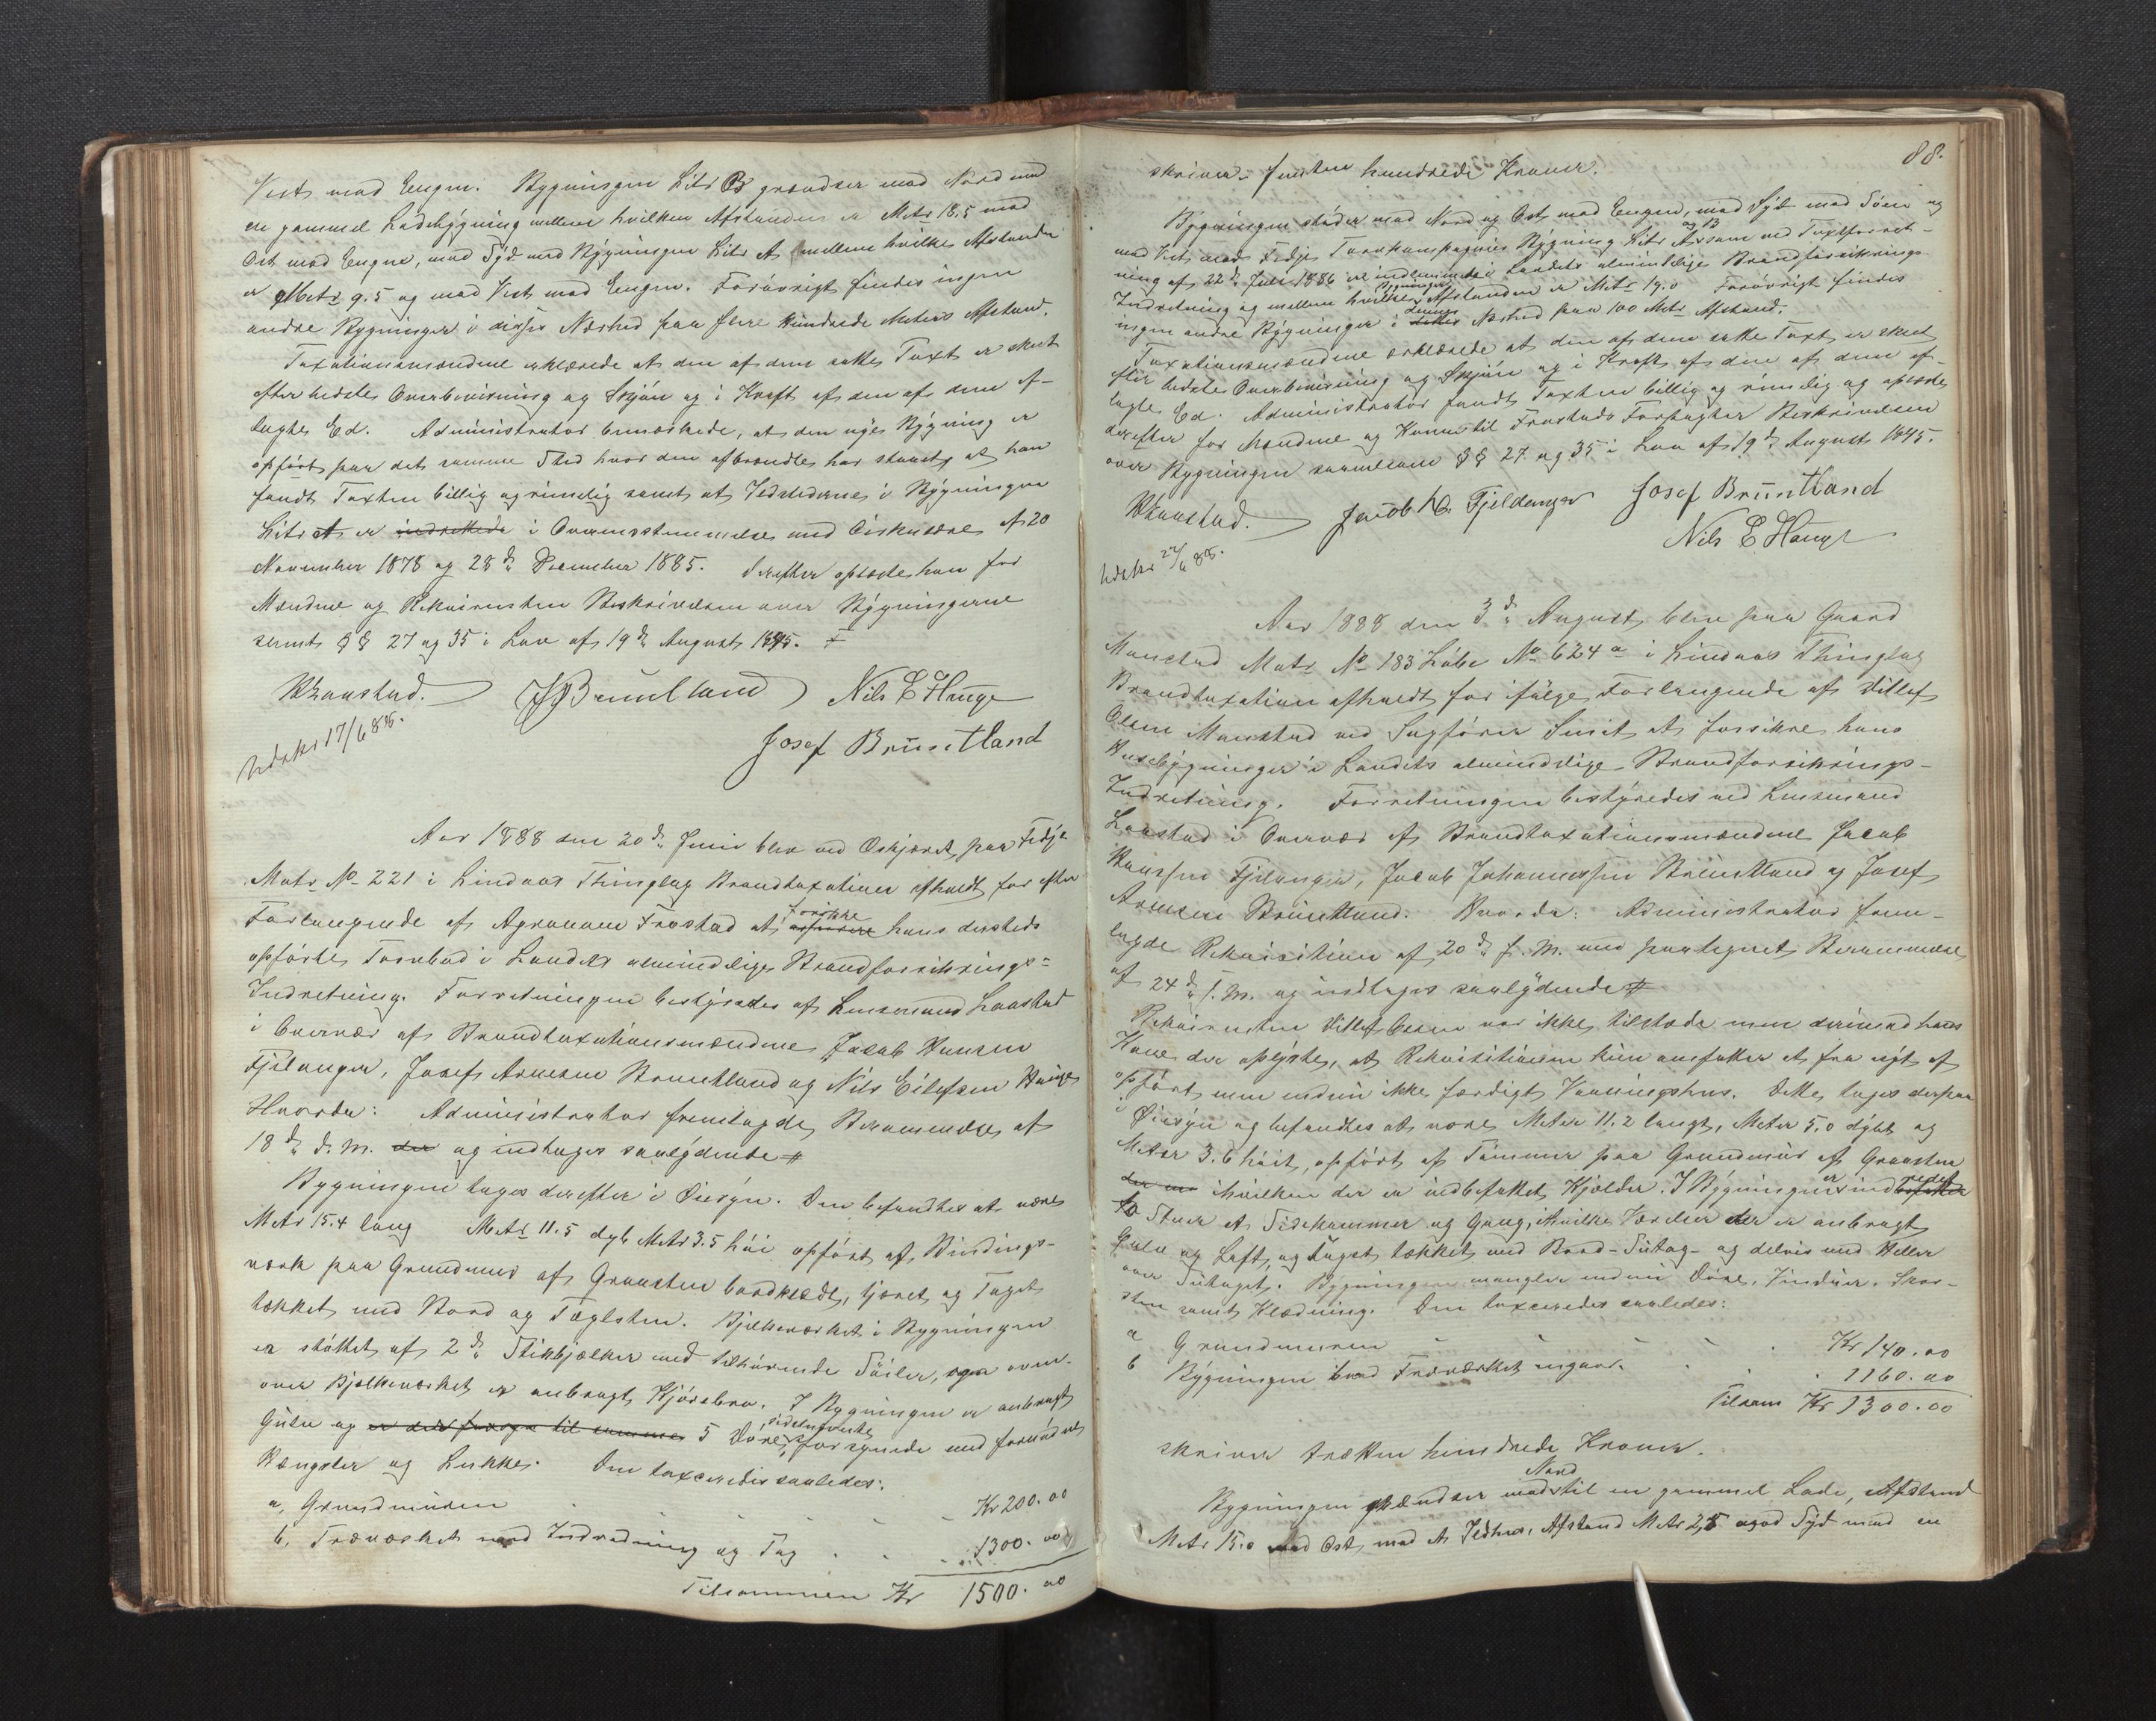 Vest mod Engen. Bygningen Litr B grændser mod Nord mod
en gammel Ladebygning mellem hvilken Afstanden er Metr 18,5 mod
Øst mod Engen, mod Syd med Bygningen Litr A mellem hvilke Afstanden
er Metr 9.5 og mod Vest mod Engen. Forøvrigt findes ingen
andre Bygninger i disses Nærhed paa flere hundrede Meters Afstand.
Taxationsmændene erklærede at den af dem satte Taxt er skeet
efter bedste Overbevisning og Skjøn og i Kraft af den af dem af-
lagte Ed. Administrator bemærkede, at den nye Bygning er
opført paa det samme Sted hvor den afbrændte har staaet, at han
fandt Taxten billig og rimelig samt at Ildstederne i Bygningen
Litr A er indrettede i Overensstemmelse med Cirkulære af 20
November 1878 og 28d December 1885. Derefter oplæste han for
Mændene og Rekvirenten Beskrivelsen over Bygningerne
samt §§ 27 og 35 i Lov af 19d August 1845.
Laastad. J Bruntland Nils E Hauge
Udskr 17/6 88. Josef Bruntland
Aar 1888 den 20d Juni blev ved Oskjæret paa Fedje
Matr No 221 i Lindaas Thinglag Brandtaxation afholdt for efter
Forlangende af Agronom Frostad at assurere forsikre hans dersteds
opførte Tarebod i Landets almindelige Brandforsikrings-
Indretning. Forretningen bestyredes af Lensmand Laastad
i Overvær af Brandtaxationsmændene Jacob Hansen
Fjeldanger, Josef Arnesen Bruntland og Nils Eilefsen Hauge
Hvorda: Administrator fremlagde Berammelse af
18d d. M. der og indtages saalydende #
Bygningen toges derefter i Øiesyn. Den befandtes at være
Metr 15.4 lang Metr 11.5 dyb Metr 3.5 høi opført af Bindings-
værk paa Grundmur af Graasten bordklædt, tjæret og Taget
tækket med Bord og Taglsten. Bjelkeværket i Bygningen
er støttet af 2d Stikbjælker med tilhørende Søiler, og oven-
over Bjelkeværket er anbragt Kjørebro. I Bygningen er anbragt
Gulv og 5 Døre, forsynede med fornødne
Hængsler og Lukke. Den taxceredes saaledes:
a, Grundmuren Kr 200.00
b, Træværket med Indredning og Tag 1300.00
Tilsammen Kr 1500.00
88.
skriver femten hundrede Kroner.
Bygningen støder mod Nord og Øst mod Engen, mod Syd mod Søen og
mod Vest mod Fedje Tarekompagnies Bygning Litr A og B som ved Taxtforret-
ning af 22d Juli 1886 er indlemmede i Landets almindelige Brandforsikrings-
Indretning og mellem hvilke Bygninger Afstanden er Metr 19.0 Forøvrigt findes
ingen andre Bygninger i dettes dennes Nærhed paa 100 Metr Afstand.
Taxationsmændene erklærede at den af dem satte Taxt er skeet
efter bedste Overbevisning og Skjøn og i Kraft af den af dem af-
lagte Ed. Administrator fandt Taxten billig og rimelig og oplæste
derefter for Mændene og Konen til Frostads Forpagter Beskrivelsen
over Bygningen sammesom §§ 27 og 35 i Lov af 19d August 1845.
Laastad. Jacob H. Fjeldanger Josef Bruntland
Nils E Hauge
Udskr 22/6 88.
Aar 1888 den 3d August blev paa Gaard
Monstad Matr No 183 Løbe No 624a i Lindaas Thinglag
Brandtaxation afholdt for ifølge Forlangende af Ditlef
Olsen Monstad ved Sagfører Smit at forsikre hans
Husebygninger i Landets almindelige Brandforsikrings-
Indretning. Forretningen bestyredes ved Lensmand
Laastad i Overvær af Brandtaxationsmændene Jacob
Hanssen Fjelanger, Jacob Johannessen Bruntland og Josef
Arnesen Bruntland. Hvorda: Administrator frem-
lagde Rekvisition af 20d f. M. med paategnet Berammelse
af 24d f. M. og indtages saalydende #
Rekvirenten Ditlef Olsen var ikke tilstede men derimod hans
Kone der oplyste, at Rekvisitionen kun omfatter et fra nyt af
opført, men endnu ikke færdigt Vaaningshus. Dette toges derpaa
i Øiesyn og befandtes at være Meter 11.2 langt, Meter 5.0 dybt og
Meter 3.6 høit, opført af Tømmer paa Grundmur af Graasten
i hvilken der er indbefattet Kjælder. I Bygningen er indredet
to Stuer et Sidekammer og Gang, i hvilke Værelser der er anbragt
Gulv og Loft, og Taget tækket med Bord-Sutag- og delvis med Heller
over Sutaget. Bygningen mangler endnu Døre, Vinduer, Skor-
sten samt Klædning. Den taxceredes saaledes:
a Grundmuren Kr 140.00
b Bygningen hvad Træværket angaar 1160.00
Tilsam Kr 1300.00
skriver tretten hundrede Kroner.
Bygningen grændser mod Nord til en gammel Lade, Afstand
Metr 15.0 mod Øst mod et Ildhus, Afstand Metr 2,5 mod Syd mod en